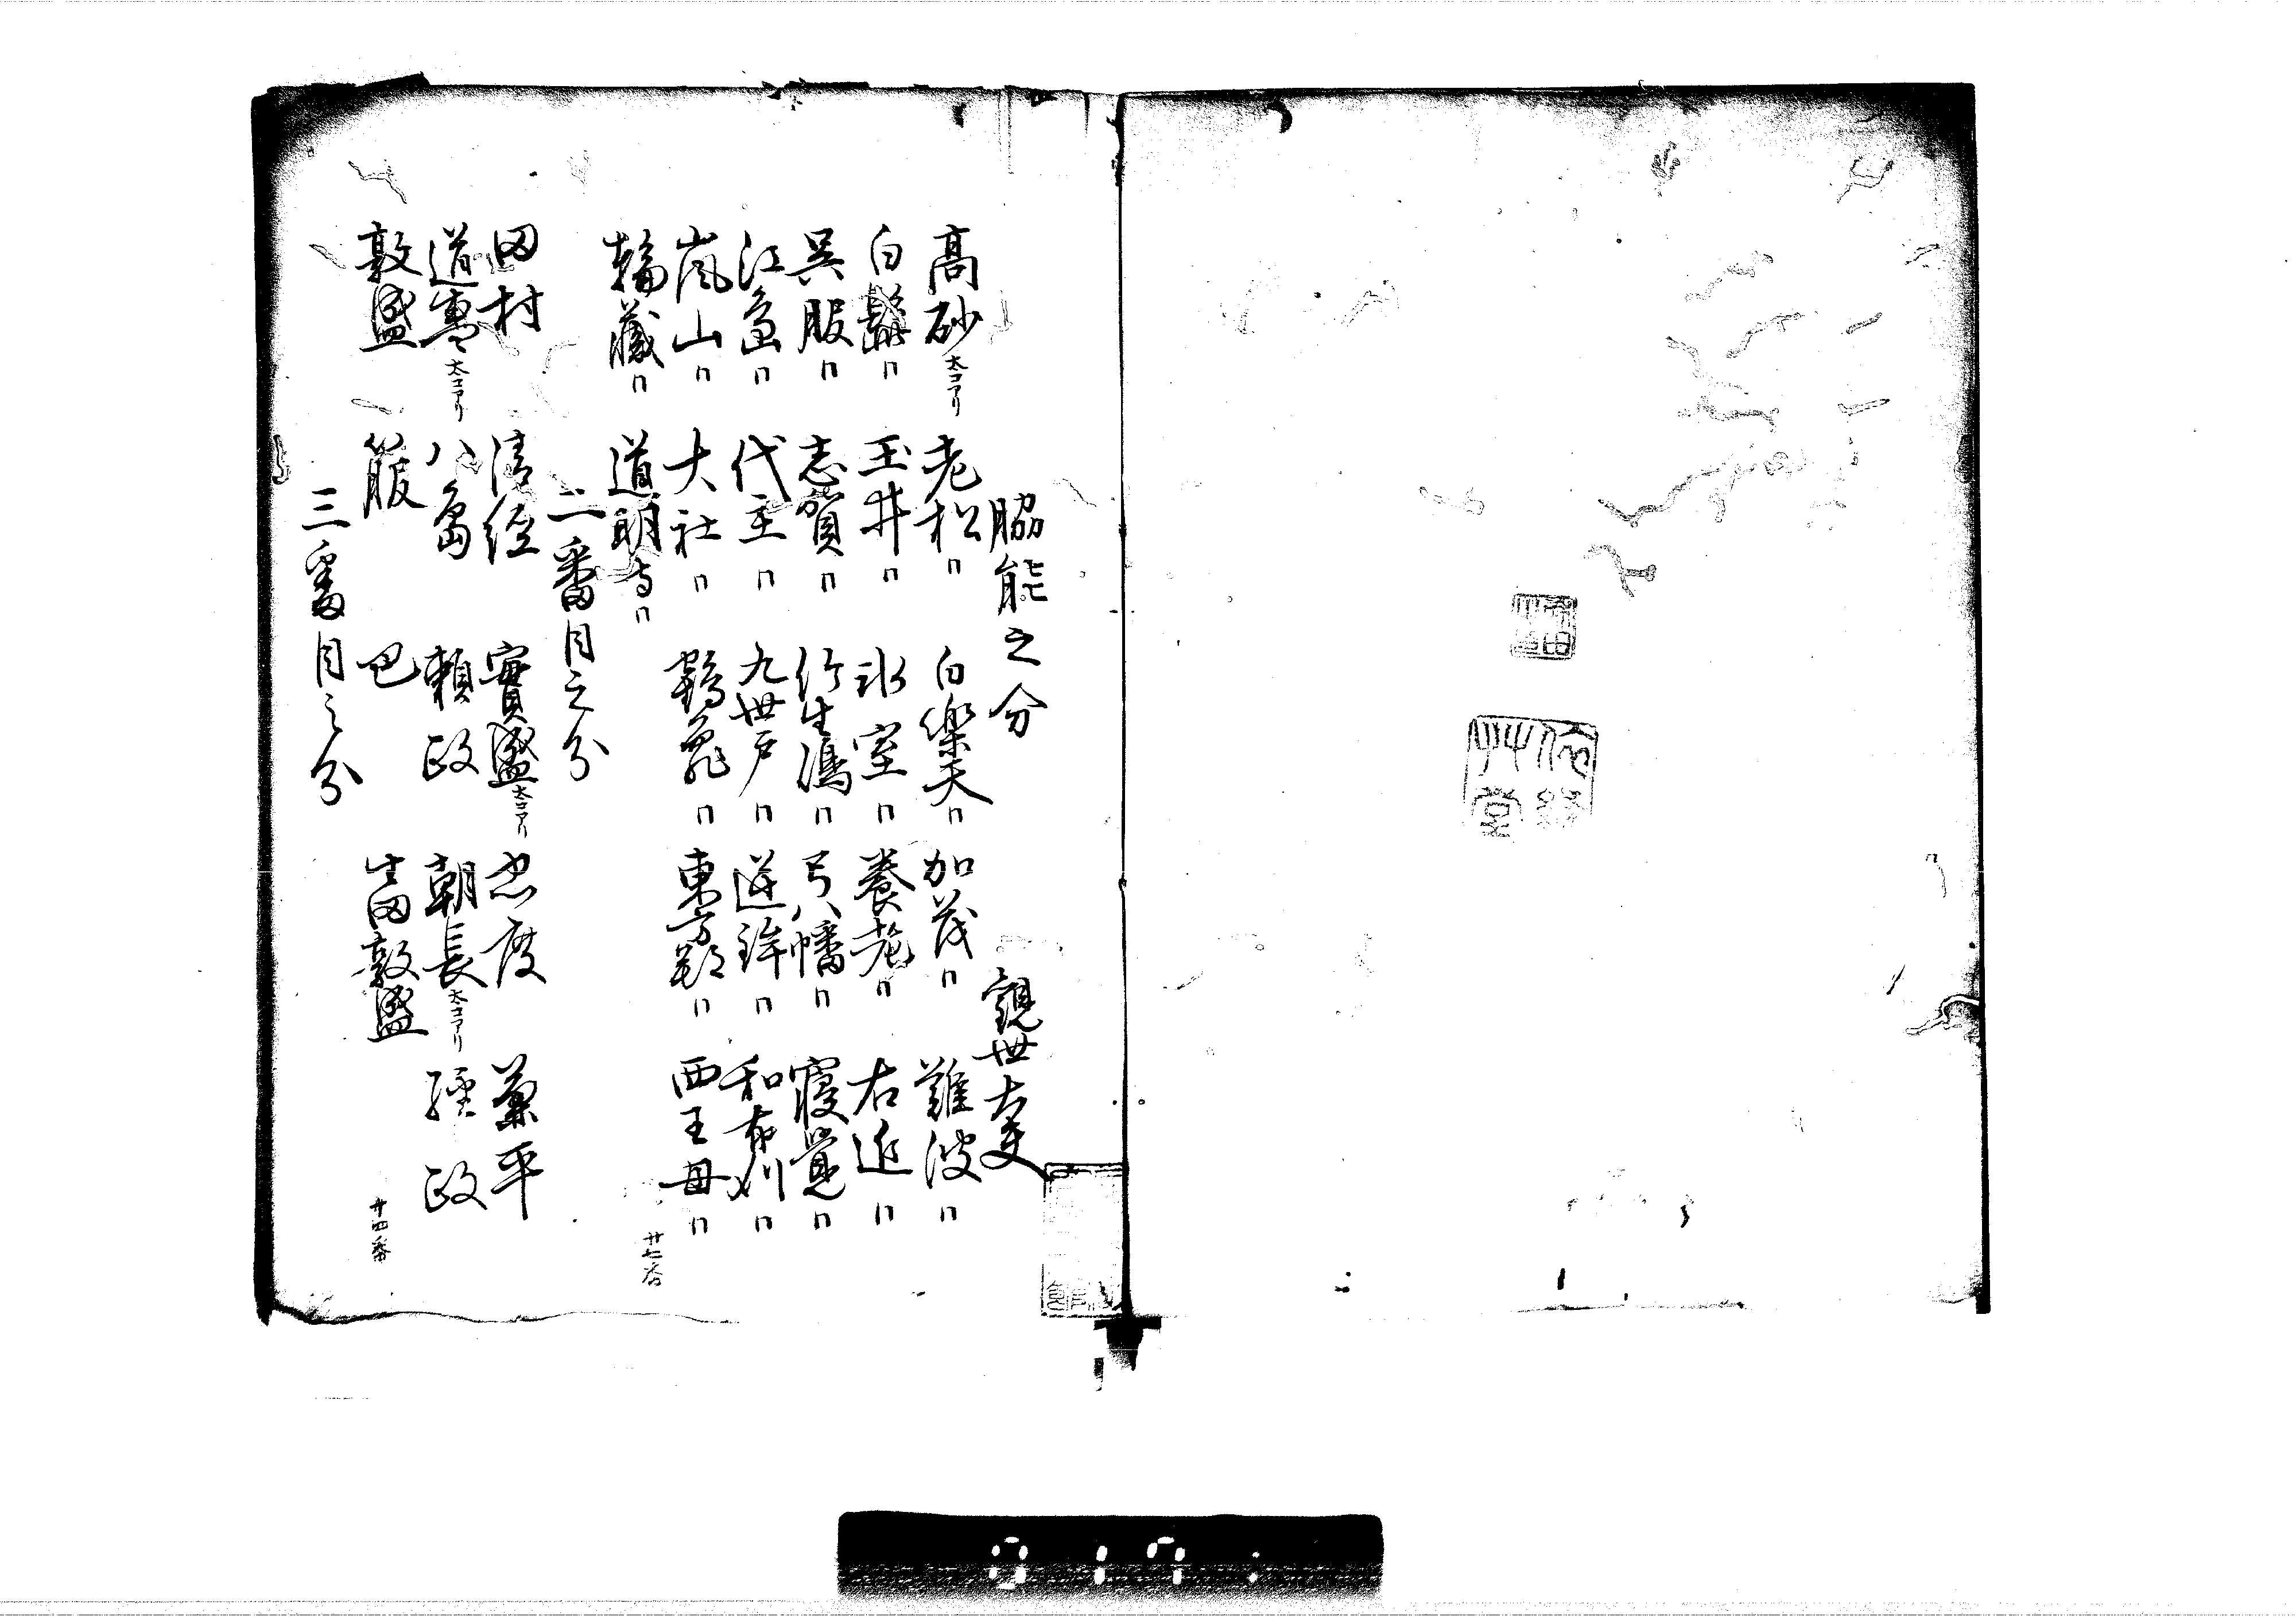 脇能之分　觀世太夫
高砂太コアリ　老松〃　白樂天〃　加茂〃　難波〃
白鬚〃　玉井〃　氷室〃　養老〃　右近〃
呉服〃　志賀〃　竹生嶋〃　弓八幡〃　寢覚〃
江島〃　代主〃　九世戸〃　逆鉾〃　和布刈〃
嵐山〃　大社〃　鶴亀〃　東方朔〃　西王母〃
輪藏〃　道明寺〃　廿七番
二番目之分
田村　清経　實盛太コアリ　忠度　兼平
道盛太コアリ　八島　頼政　朝長太コアリ　経政
敦盛　箙　巴　生田敦盛　十四番
三番目之分